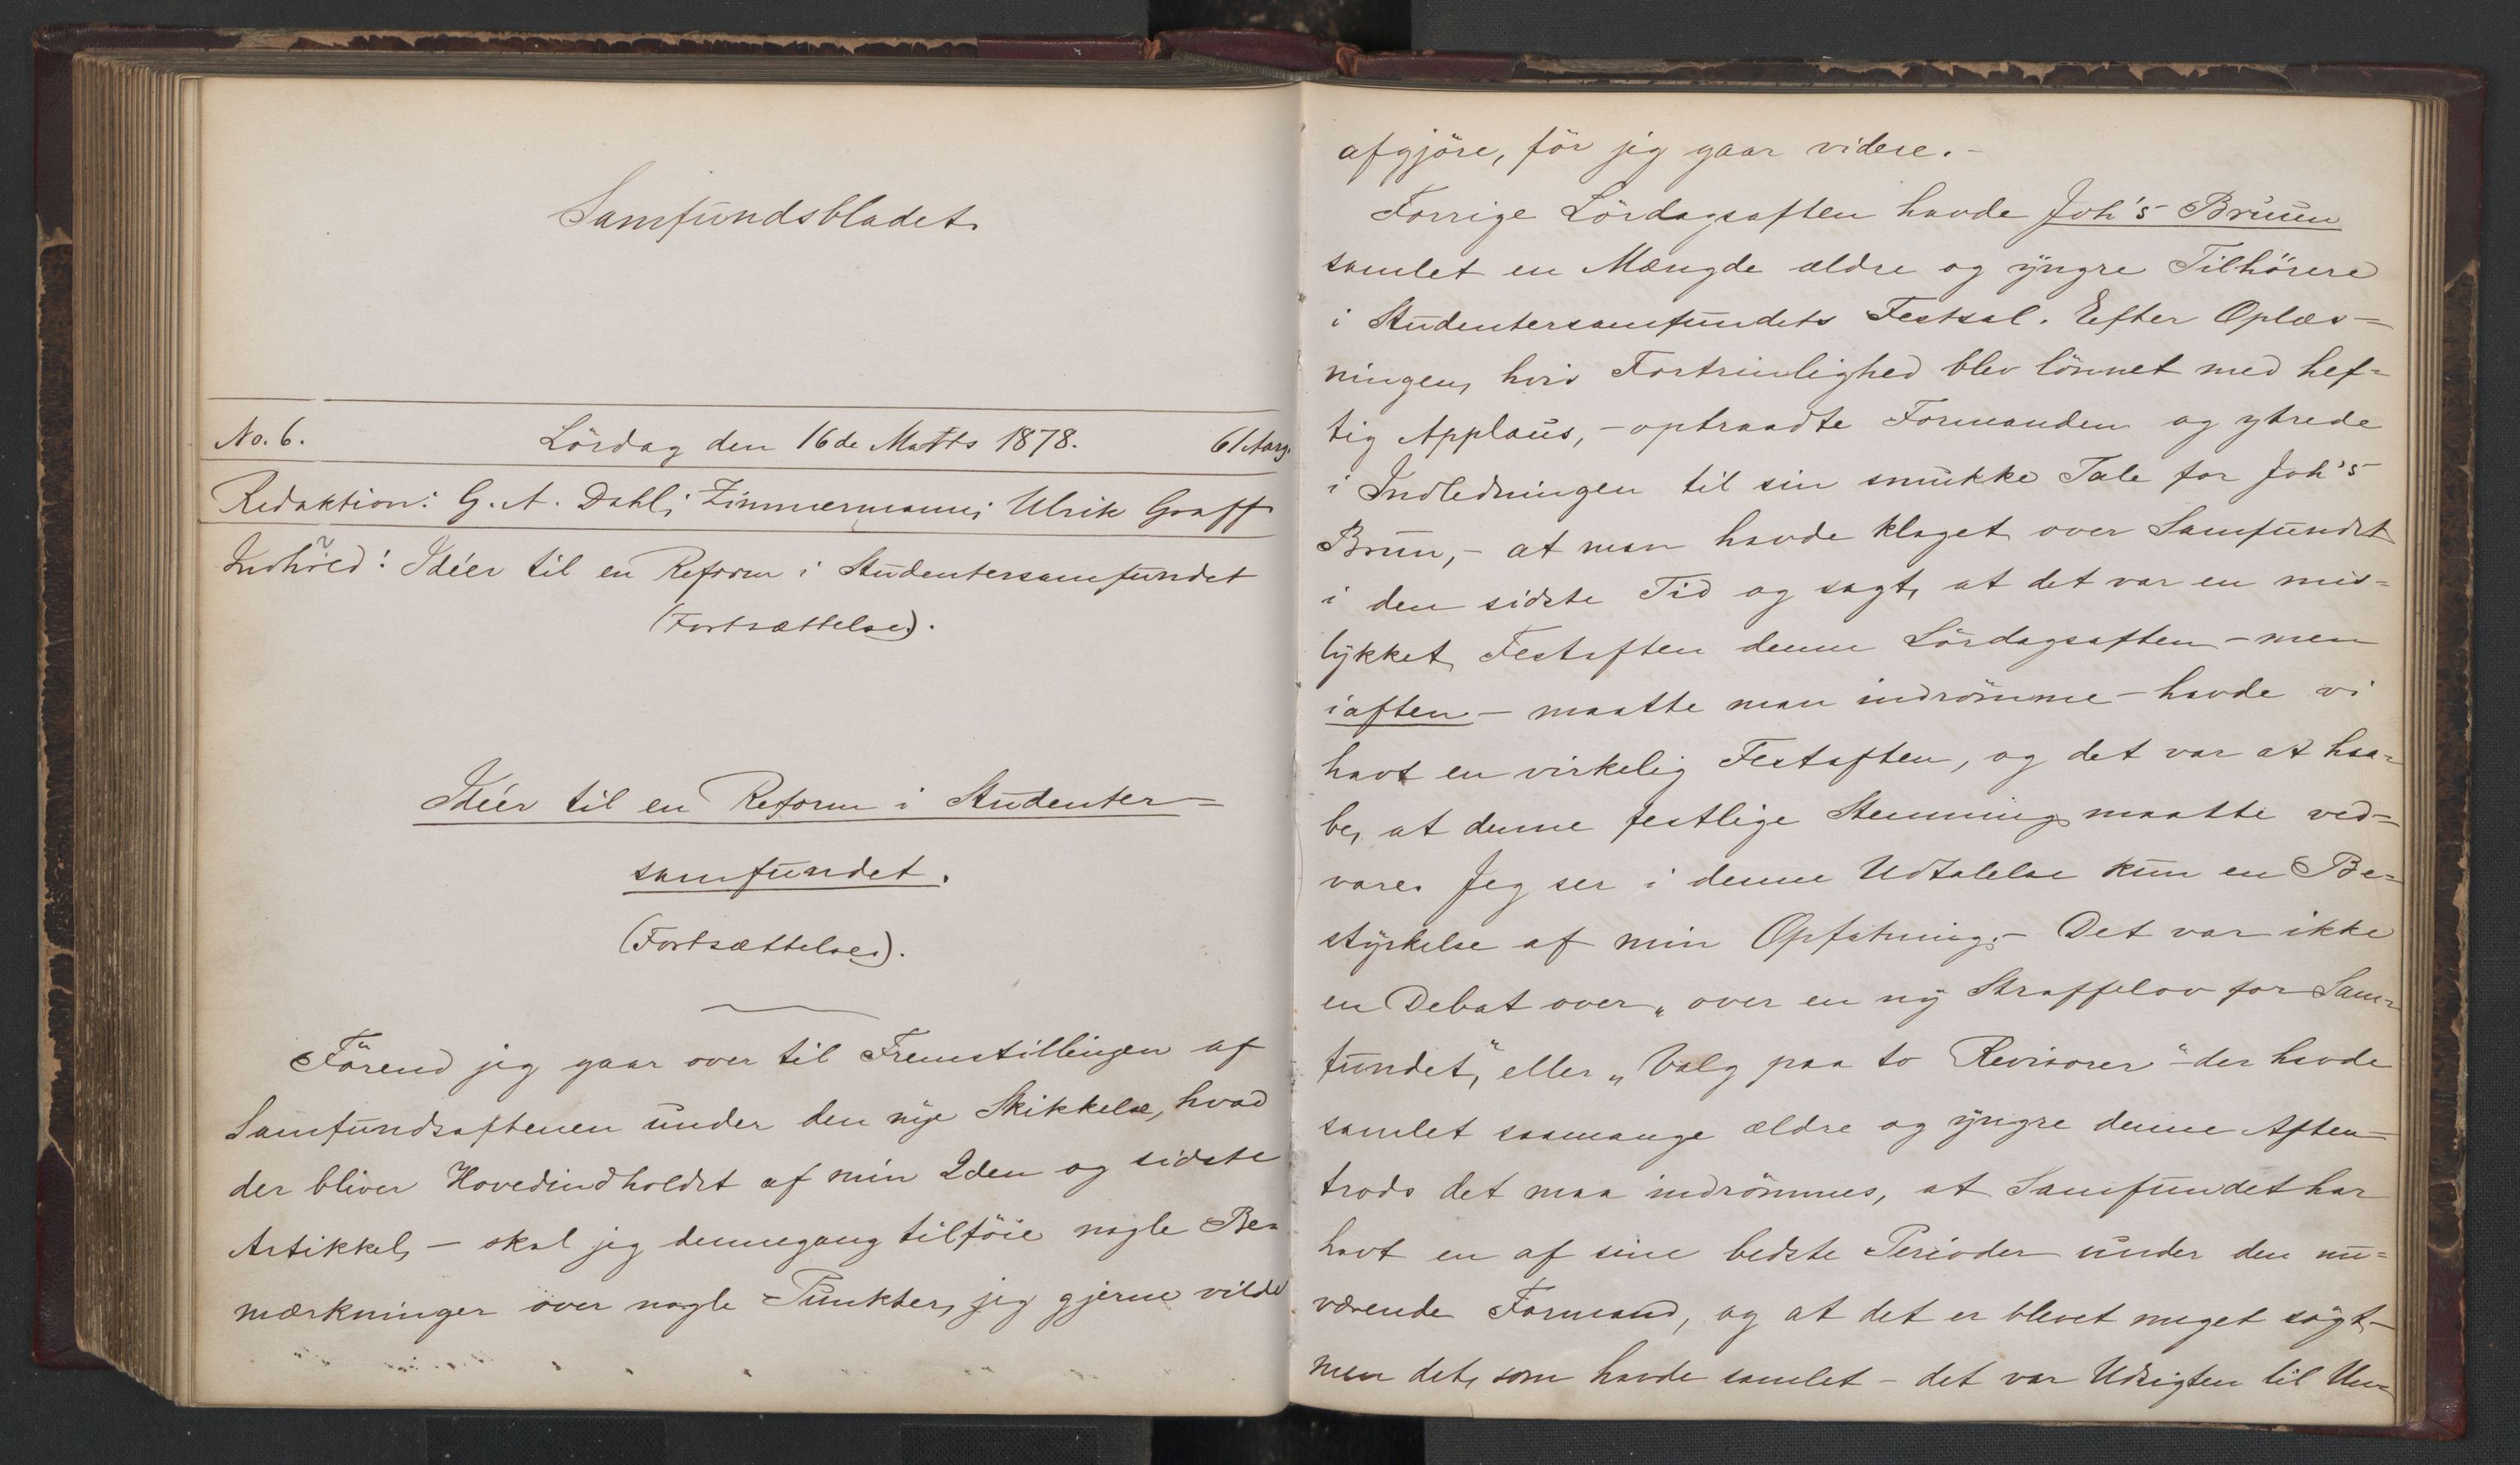 Samfundsbladet.
No. 6. Lördag den 16de Marts 1878. 61 Aarg.
Redaktion: G. A. Dahl; Zimmermann; Ulrik Graff
Indhold: Idéer til en Reform i Studentersamfundet
(Fortsættelse).
Idéer til en Reform i Studenter=
samfundet.
(Fortsættelse).
Förend jeg gaar over til Fremstillingen af
Samfundsaftenen under den nye Skikkelse, hvad
der bliver Hovedindholdet af min 2den og sidste
Artikkel, – skal jeg dennegang tilföie nogle Be=
mærkninger over nogle Punkter, jeg gjerne vilde
afgjöre, för jeg gaar videre. –
Forrige Lördagsaften havde Joh's Bruun
samlet en Mængde ældre og yngre Tilhörere
i Studentersamfundets Festsal. Efter Oplæs=
ningen, hvis Fortrinlighed blev lönnet med hef=
tig Applaus, – optraadte Formanden og ytrede
i Indledningen til sin smukke Tale for Joh's
Brun, – at man havde klaget over Samfundet
i den sidste Tid og sagt, at det var en mis=
lykket Festaften denne Lördagsaften – men
iaften – maatte man indrömme – havde vi
havt en virkelig Festaften, og det var at haa=
be, at denne festlige Stemning maatte ved=
vare. Jeg ser i denne Udtalelse kun en Be=
styrkelse af min Opfatning. – Det var ikke
en Debat over „over en ny Straffelov for Sam=
fundet," eller „Valg paa to Revisorer" – der havde
samlet saamange ældre og yngre denne Aften –
trods det maa indrömmes, at Samfundet har
havt en af sine bedste Perioder under den nu=
værende Formand, og at det er blevet meget sögt –
men det, som havde samlet – det var Udsigten til Un=